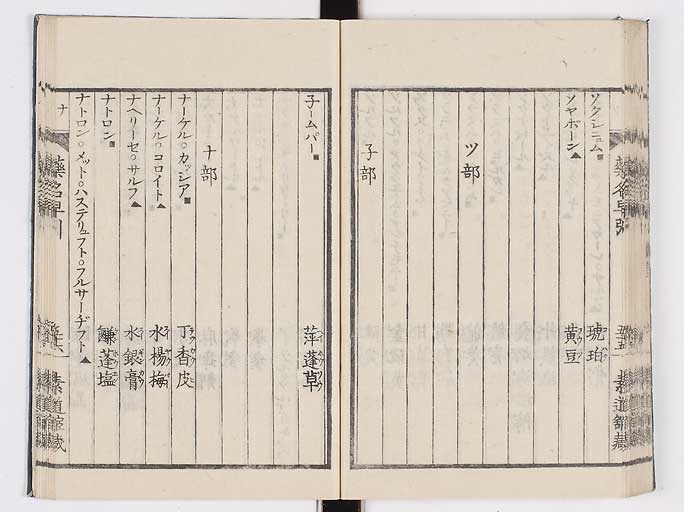 ソクシニュム 琥珀
ソヤボーン▲ 黄豆
ツ部
子部
子ームバー 萍蓬草
ナ部
ナーゲル○カッシア 丁香皮
ナーゲル○コロイト▲ 水楊梅
ナヘリーセ○サルフ▲ 水銀膏
ナトロン 鹻蓬塩
ナトロン○メット○ハステリュフト○フルサーヂフト▲
ナ
薬名早引
素道館蔵